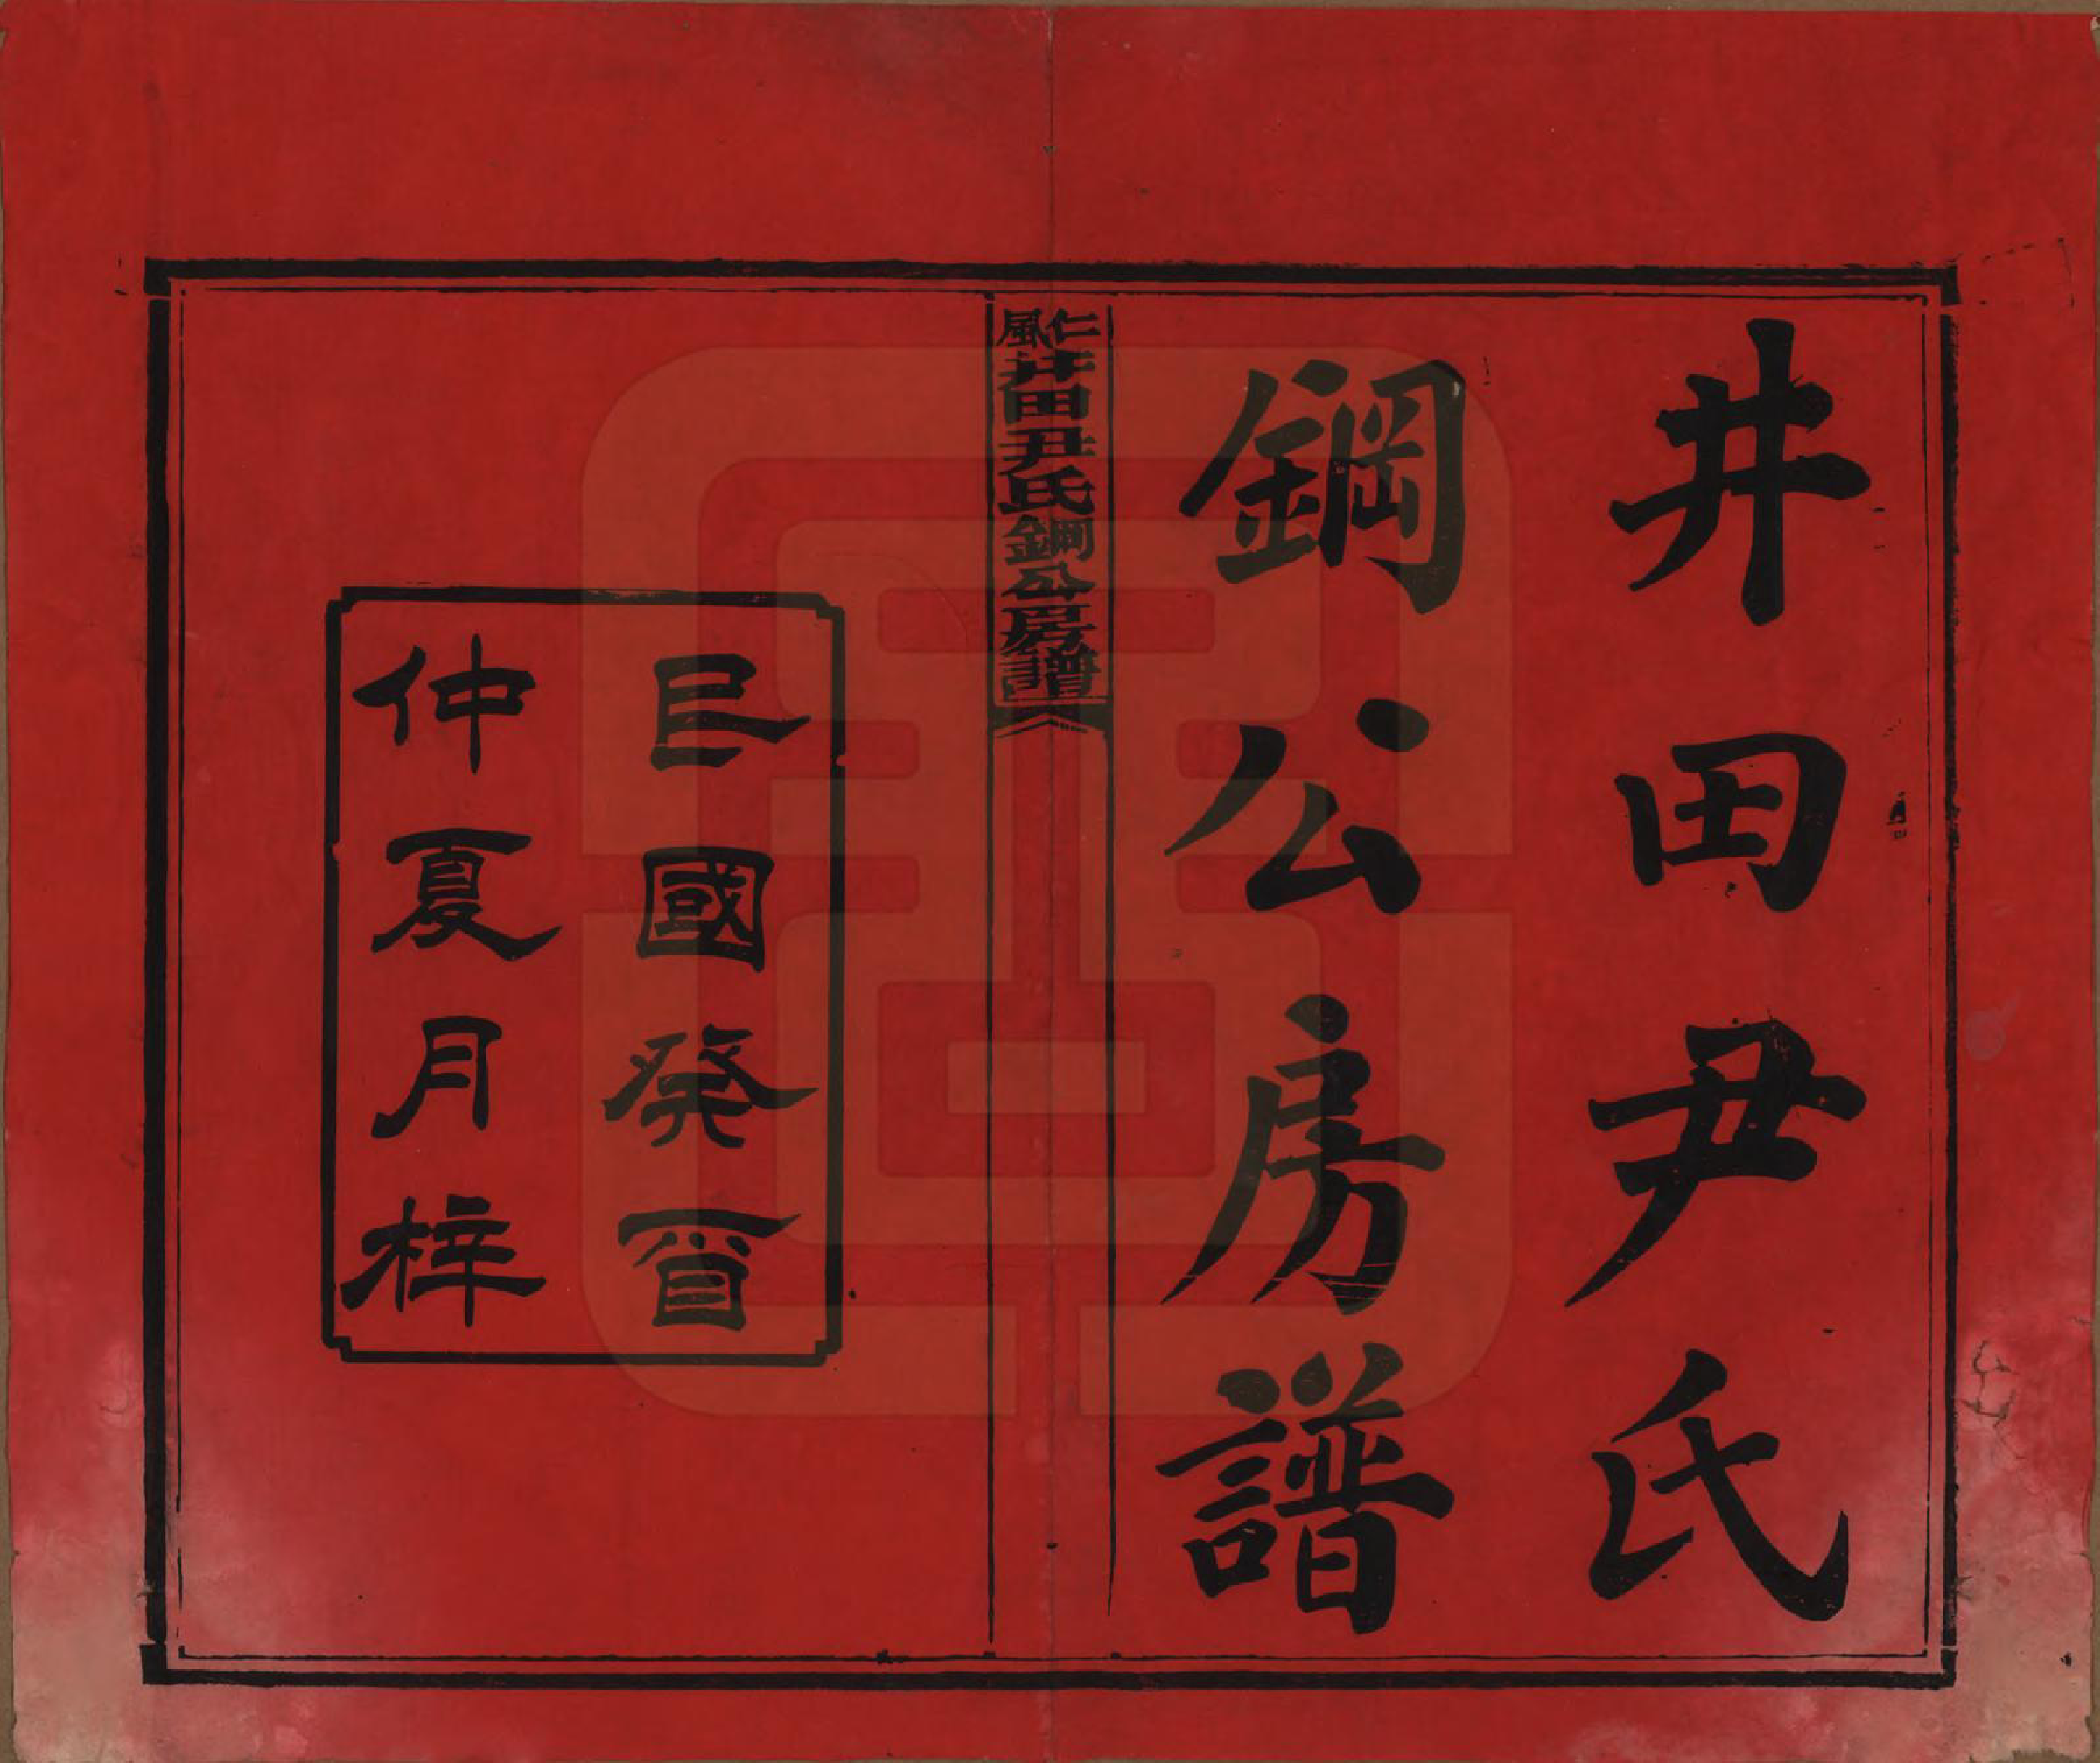 井田尹氏
鋼公房譜
仁風井田尹氏鋼公房譜
民國癸酉
仲夏月梓